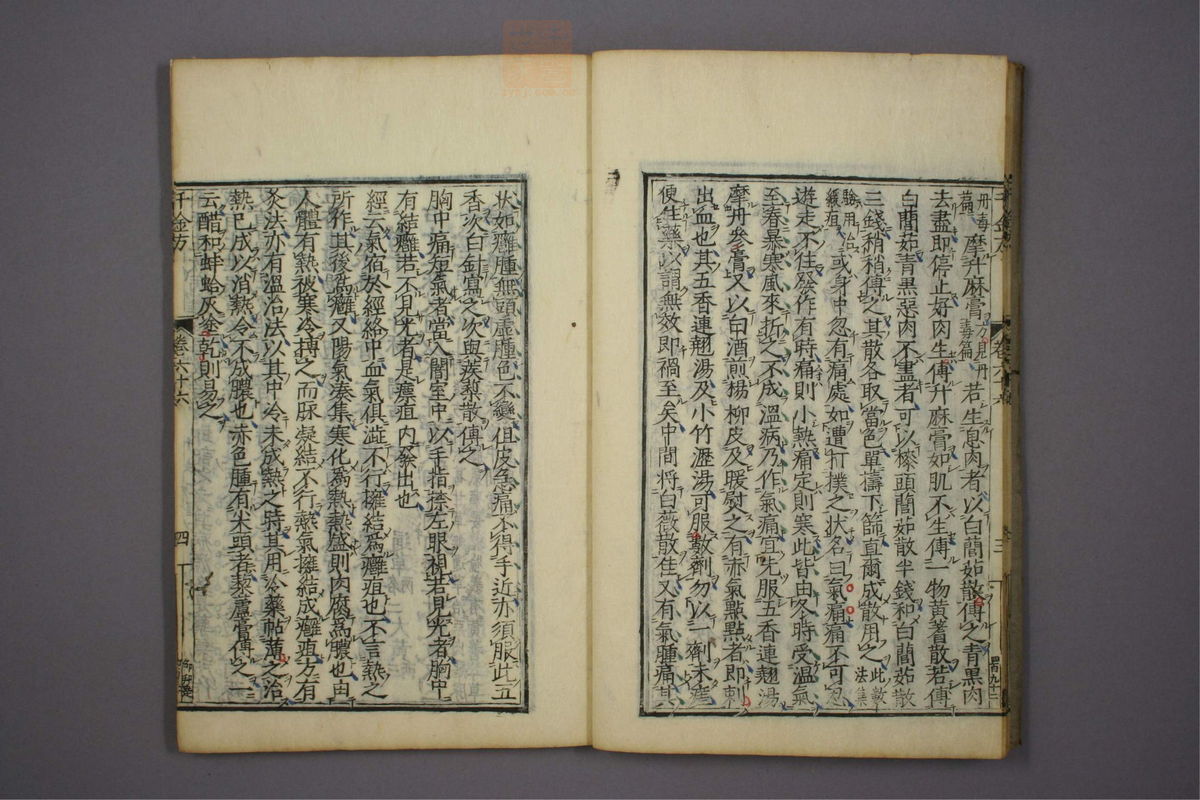 丹毒篇摩升麻膏方見丹毒篇若生息肉者以白䕡茹散傅之青黑肉
去盡即停止好肉生傅升麻膏如肌不生傅一物黄蓍散若傅
白䕡茹青黒惡肉不盡者可以柒頭䕡茹散半錢和白䕡茹散
三錢稍稍傅之其散各取當色單擣下篩直爾成散用之此數法集
驗用治緩疽或身中忽有痛處如遭打撲之状名曰氣痛痛不可忍
遊走不住發作有時痛則小熱痛定則寒此皆由冬時受温氣
至春暴寒風來折之不成温病乃作氣痛宜先服五香連翹湯
摩丹參膏又以白酒煎楊柳皮及暖熨之有赤氣點點者即刺
出血也其五香連翹湯及小竹瀝湯可服數劑勿以一劑未瘥
便住藥以謂無效即禍至矣中間将白薇散佳又有氣腫痛其
状如癰腫無頭虚腫色不變但皮急痛不得手近亦須服此五
香次白針瀉之次與蒺蔾散傅之
胸中痛短氣者當入闇室中以手指捺左眼視若見光者胸中
有結癰若不見光者是瘭疽内發出也
經云氣宿於經絡中血氣俱澁不行擁結爲癰疽也不言熱之
所作其後爲癰又陽氣湊集寒化爲熱熱盛則肉腐爲膿也由
人體有熱被寒冷搏之而脉凝結不行熱氣擁結成癰疽方有
灸法亦有温治法以其中冷未成熱之時其用冷藥帖薄之治
熱已成以消熱令不成膿也赤色腫有尖頭者藜蘆膏傅之一
云醋和蚌蛤灰塗乾則易之
千金方
卷六十六
四